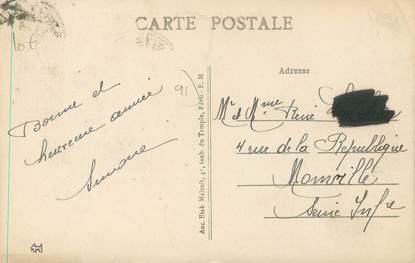 CARTE POSTALE
10 €
Adresse
91
Bonne et
heureuse année
Simone
Mr et Mme René
4 rue de la République
Monville
Seine Infre
Anc. Etab Malcuit, 41, faub. du Temple, Paris - E. M